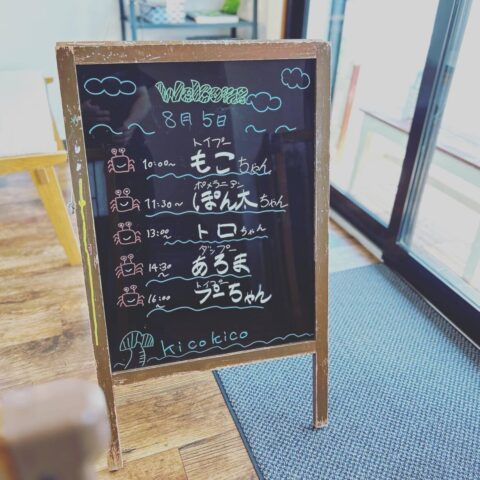 Welcome
8月5日
トイプー
10:00〜 もこちゃん
ポメラニアン
11:30〜 ぽん太ちゃん
13:00〜 トロちゃん
ダップー
14:30 あろま
トイプー
16:00 プーちゃん
kicokico